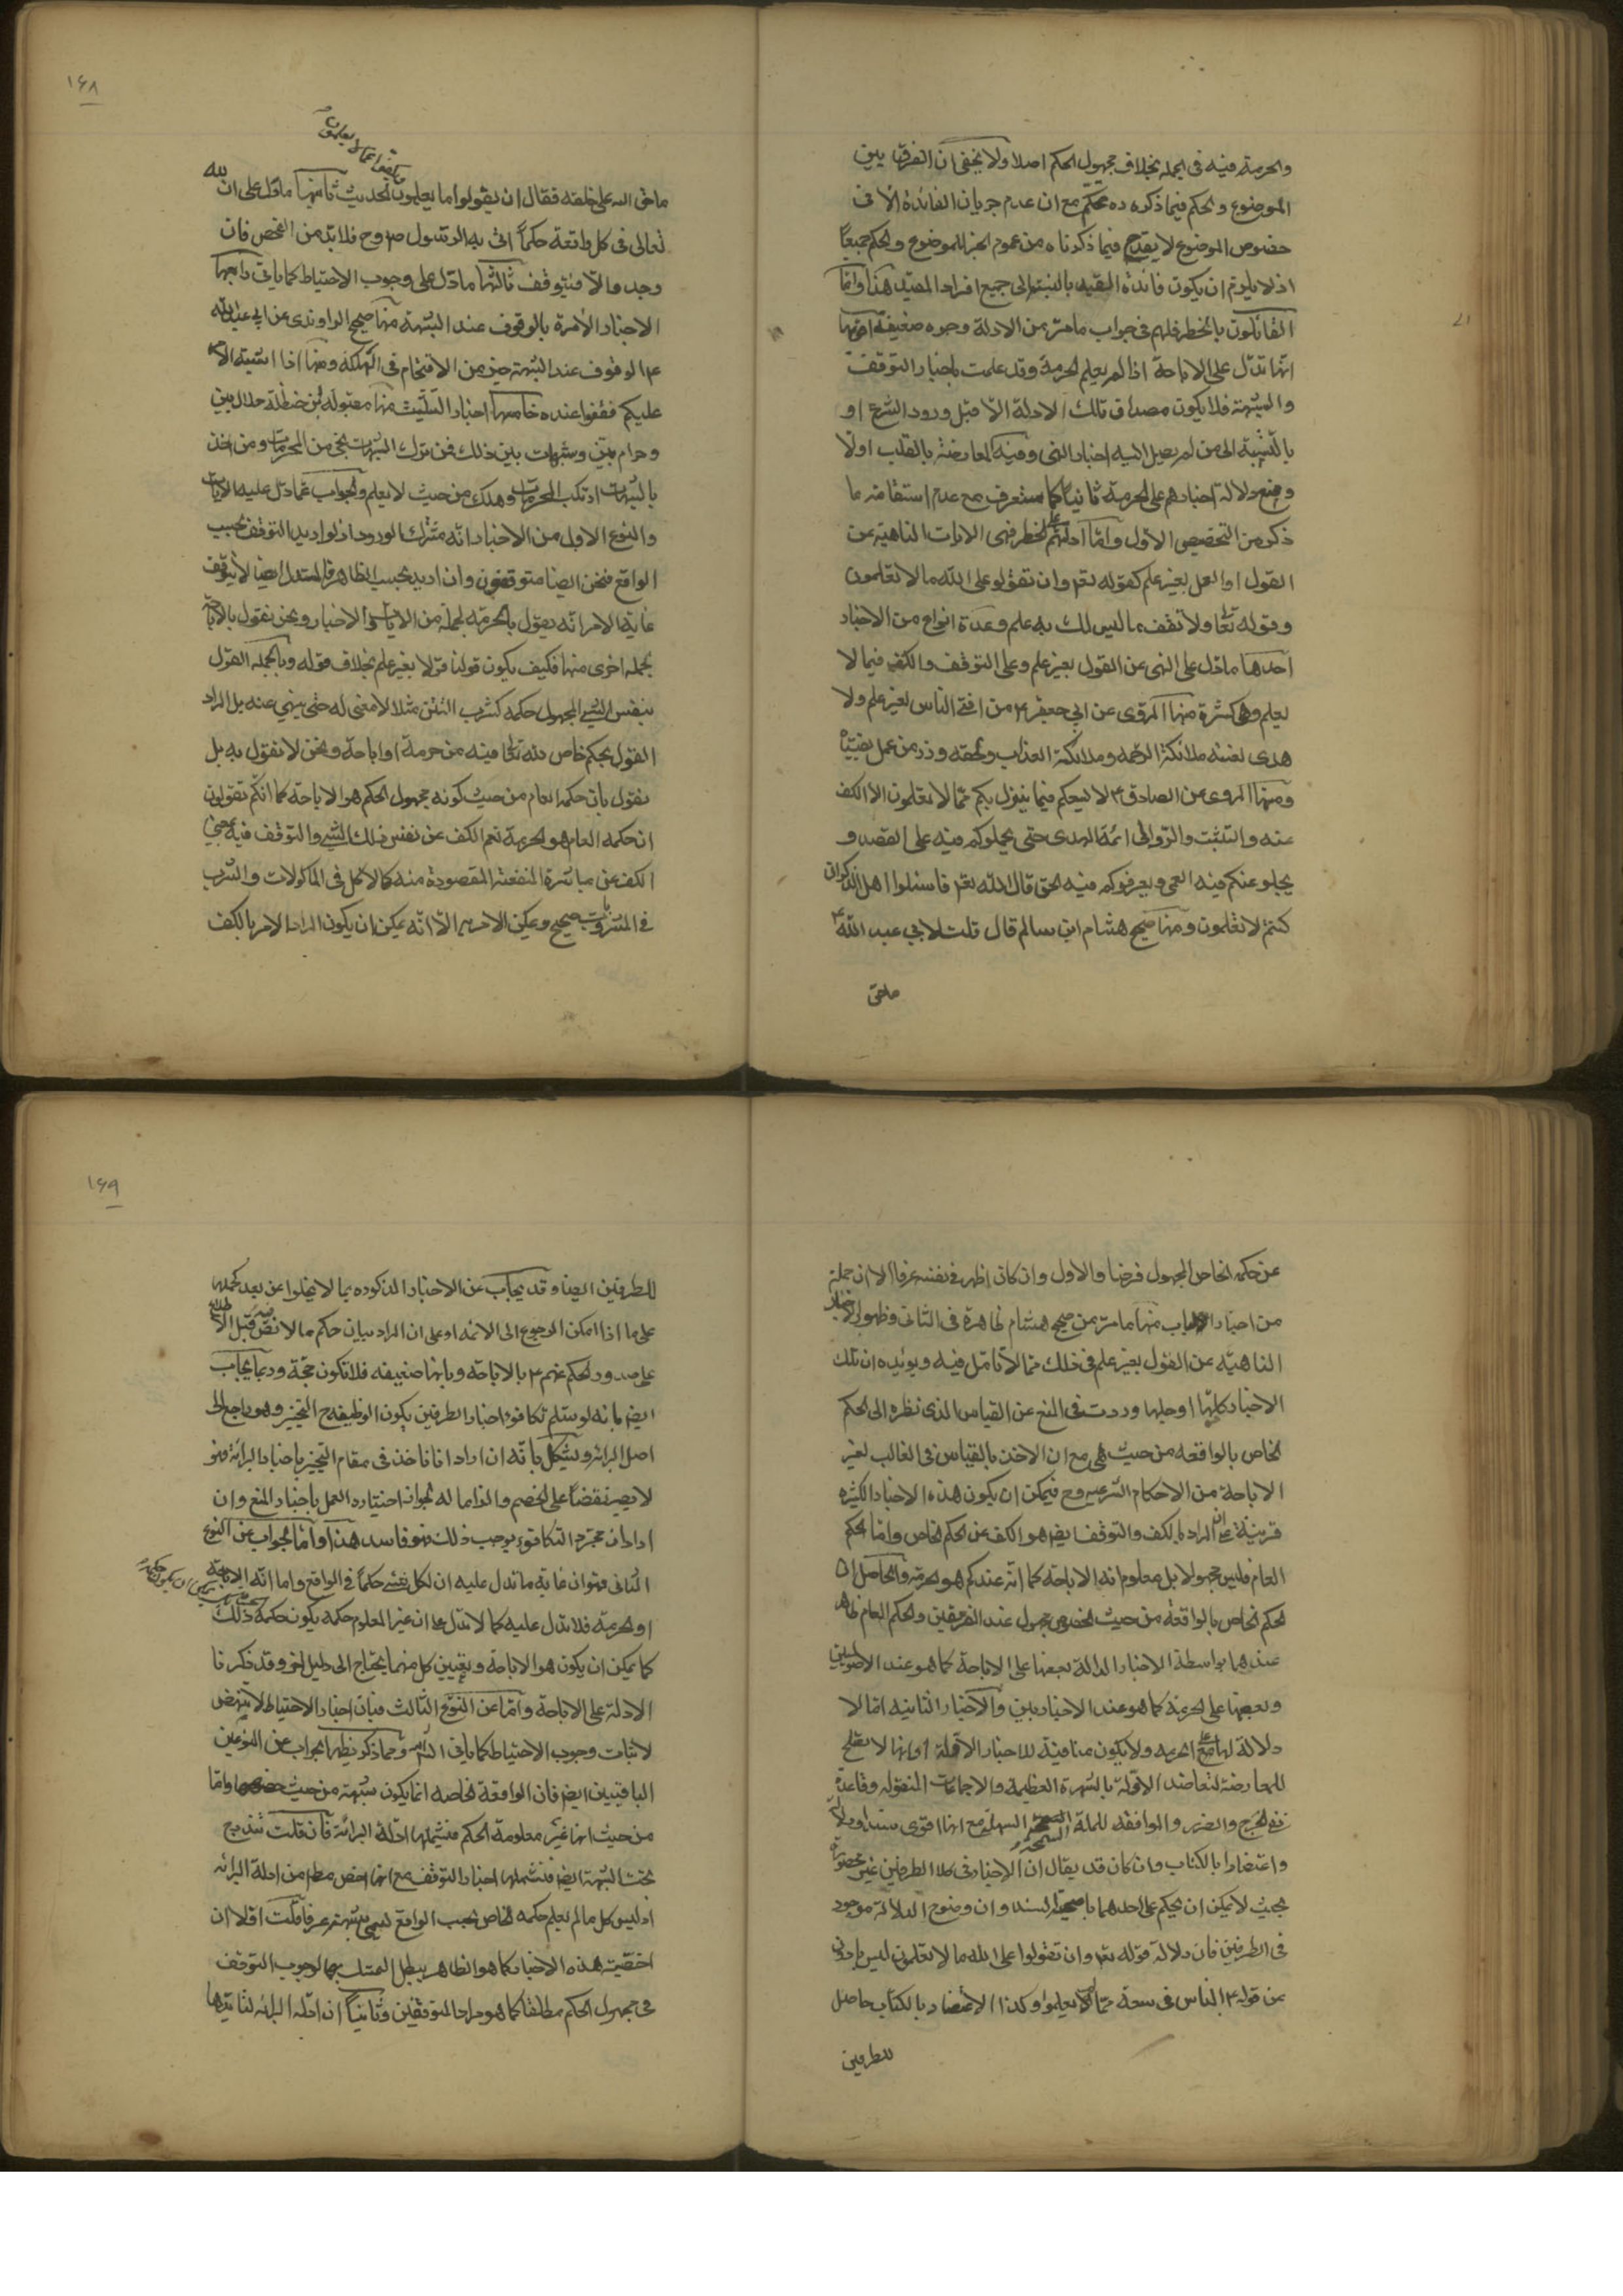 والحرمة فيه في الجملة بخلاف مجهول الحكم اصلا ولا يخفى ان الفرق بين
الموضوع والحكم فيما ذكره ره تحكم مع ان عدم جريان الفائدة الا في
خصوص الموضوع لا يقدح فيما ذكرناه من عموم الخبر للموضوع والحكم جميعاً
اذ لا يلزم ان يكون فائدة القيد بالنسبة الى جميع افراد المقيد هذا واما
القائلون بالخطر فلهم في جواب ما مر من الادلة وجوه ضعيفة اقويها
انها تدل على الاباحة اذا لم يعلم الحرمة وقد علمت باخبار التوقف
والشبهة فلا يكون مصداق تلك الادلة الا قبل ورود الشرع او
بالنسبة الى من لم يصل اليه اخبار النهي وفيه المعارضة بالقلب اولا
ومنع دلالة اخبارهم على الحرمة ثانيا كما ستعرف مع عدم استقامة ما
ذكر من التخصيص الاول واما ادلتهم على الخطر فهي الايات الناهية عن
القول او العمل بغير علم كقوله تعم وان تقولو على الله ما لا تعلمون
وقوله تعا ولا تقف ما ليس لك به علم وعدة انواع من الاخبار
احدها ما دل على النهي عن القول بغير علم وعلى التوقف والكف فيما لا
يعلم وهي كثيرة منها المروي عن ابي جعفر ع من افتى الناس بغير علم ولا
هدى لعنته ملائكة الرحمه وملائكة العذاب ولحقه وزر من عمل بفتياه
ومنها المروي عن الصادق ع لا يسعكم فيما ينزل بكم مما لا تعلمون الا الكف
عنه والتثبت والرد الى ائمة الهدى حتى يحملوكم فيه على القصد و
يجلو عنكم فيه العمى ويعرفوكم فيه الحق قال الله تعم فاسئلوا اهل الذكر ان
كنتم لا تعلمون ومنها صحيح هشام ابن سالم قال قلت لابي عبد الله ع
ما حق
١٦٨
ما حق الله على خلقه فقال ان يقولوا ما يعلمون الحديث ثانيها ما دل على ان لله
ويكفوا عما لا يعلمون
تعالى في كل واقعة حكماً اتى به الرسول ص وح فلابد من الفحص فان
وجد والا فيتوقف ثالثها ما دل على وجوب الاحتياط كما ياتي رابعها
الاخبار الآمرة بالوقوف عند الشبهة منها صحيح الراوندي عن ابي عبد الله
ع الوقوف عند الشبهة خير من الاقتحام في الهلكة ومنها اذا اشتبه الامر
عليكم فقفوا عنده خامسها اخبار التثليث منها مقبولة بن حنظلة حلال بين
وحرام بين وشبهات بين ذلك فمن ترك الشبهات نجى من المحرمات ومن اخذ
بالشبهات ارتكب المحرمات وهلك من حيث لا يعلم والجواب عما دل عليه الايات
والنوع الاول من الاخبار انه مشترك الورود اذ لو اريد التوقف بحسب
الواقع فنحن ايضا متوقفون وان اريد بحسب الظاهر فالمستدل ايضا لا يتوقف
غاية الامر انه يقول بالحرمة لجملة من الايات والاخبار ونحن نقول بالاباحة
لجملة اخرى منها فكيف يكون قولنا قولا بغير علم بخلاف قوله وبالجملة القول
بنفس الشيء المجهول حكمه كشرب التتن مثلا لا معنى له حتى ينهي عنه بل المراد
القول بحكم خاص لله تعا فيه من حرمة او اباحة ونحن لا نقول به بل
نقول بان حكمه العام من حيث كونه مجهول الحكم هو الاباحة كما انكم تقولون
ان حكمه العام هو الحرمة نعم الكف عن نفس ذلك الشيء والتوقف فيه بمعنى
الكف عن مباشرة المنفعة المقصودة منه كالاكل في الماكولات والشرب
في المشروبات صحيح ويمكن الامر به الا انه يمكن ان يكون المراد الامر بالكف
عن حكمه الخاص المجهول فرضا والاول وان كان اظهر في نفسه عرفا الا ان جملة
من اخبار الباب منها ما مر من صحيح هشام ظاهرة في الثاني وظهور الاخبار
الناهية عن القول بغير علم في ذلك مما لا تامل فيه ويؤيده ان تلك
الاخبار كلها او جلها وردت في المنع عن القياس الذي نظره الى الحكم
الخاص بالواقعه من حيث هي مع ان الاخذ بالقياس في الغالب لغير
الاباحة من الاحكام الشرعيه وح فيمكن ان يكون هذه الاخبار الكثيره
قرينة على ان المراد بالكف والتوقف ايضا هو الكف عن الحكم الخاص واما الحكم
العام فليس مجهولا بل معلوم انه الاباحة كما انه عندكم هو الحرمة والحاصل ان
الحكم الخاص بالواقعة من حيث الخصوص مجهول عند الفريقين والحكم العام ظاهر
عندهما بواسطة الاخبار الدالة بعضها على الاباحة كما هو عند الاصوليين
وبعضها على الحرمة كما هو عند الاخباريين والاخبار الثانيه اما لا
دلالة لها على الحرمه ولا يكون منافية للاخبار الاولة او انها لا تصلح
للمعارضة لتعاضد الاولة بالشهرة العظيمه والاجماعات المنقولة وقاعدة
نفي الحرج والضرر والموافقة للملة السمحة السهلة مع انها اقوى سندا ودلالة
السمحة
واعتضادا بالكتاب وان كان قد يقال ان الاخبار في كلا الطرفين غير محصورة
بحيث لا يمكن ان يحكم على احدهما باصحية السند وان وضوح الدلالة موجود
في الطرفين فان دلالة قوله تعم وان تقولوا على الله ما لا تعلمون ليس بادون
عن قوله ع الناس في سعة مما لا يعلموا وكذا الاعتضاد بالكتاب حاصل
للطرفين
١٦٩
للطرفين ايضا وقد يجاب عن الاخبار المذكوره بما لا يخلوا عن بعد كحملها
على ما اذا امكن الرجوع الى الائمه او على ان المراد بيان حكم ما لا نص فيه قبل الاطلاع
على صدور الحكم عنهم ع بالاباحة وبانها ضعيفه فلا تكون حجة وربما يجاب
ايضا بانه لو سلم تكافؤ اخبار الطرفين يكون الوظيفة ح التخيير وهو راجع الى
اصل البرائة ويشكل بانه ان اراد انا ناخذ في مقام التخيير باخبار البرائة فهو
لا يصير نقضا على الخصم والزاما له لجواز اختياره العمل باخبار المنع وان
اراد ان مجرد التكافؤ يوجب ذلك فهو فاسد هذا واما الجواب عن النوع
الثاني فهو ان غاية ما تدل عليه ان لكل شيء حكماً في الواقع واما انه الاباحة
او الحرمة فلا تدل عليه كما لا تدل على ان غير المعلوم حكمه يكون حكمه ذلك
كما يمكن ان يكون هو الاباحة وتعيين كل منهما يحتاج الى دليل اخر وقد ذكرنا
الادلة على الاباحة واما عن النوع الثالث فبان اخبار الاحتياط لا ينهض
لاثبات وجوب الاحتياط كما ياتي انشاء الله ومما ذكر يظهر الجواب عن النوعين
الباقيين ايضا فان الواقعة الخاصة انما يكون شبهة من حيث خصوصها واما
من حيث انها غير معلومة الحكم فيشملها ادلة البرائة فان قلت تندرج
تحت الشبهة ايضا فتشملها اخبار التوقف مع انها اخص مطلقا من ادلة البرائه
اذ ليس كل ما لم يعلم حكمه الخاص بحسب الواقع تسمى شبهة عرفا قلت اولا ان
اخصية هذه الاخبار كما هو الظاهر يبطل التمسك بها لوجوب التوقف
في مجهول الحكم مطلقا كما هو مراد المتوقفين وثانياً ان ادلة البرائه لتائيدها